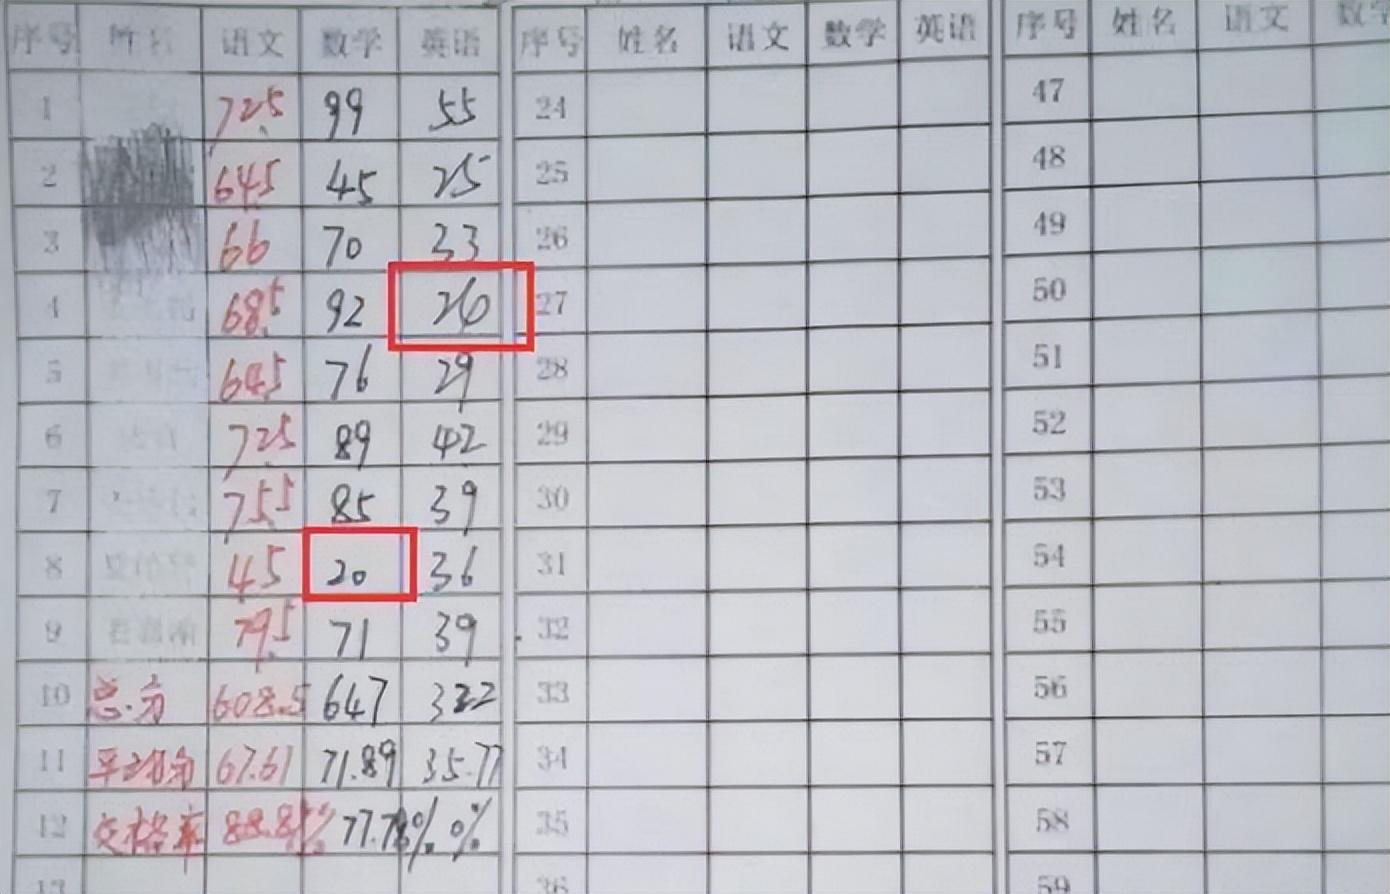 序号 姓名 语文 数学 英语 序号 姓名 语文 数学 英语 序号 姓名 语文 数学
1 72.5 99 55 24 47
2 64.5 45 25 25 48
3 66 70 33 26 49
4 68.5 92 26 27 50
5 64.5 76 29 28 51
6 72.5 89 42 29 52
7 75.5 85 39 30 53
8 45 20 36 31 54
9 79.5 71 39 32 55
10 总分 608.5 647 322 33 56
11 平均分 67.61 71.89 35.77 34 57
12 及格率 88.8% 77.78% 0% 35 58
13 36 59